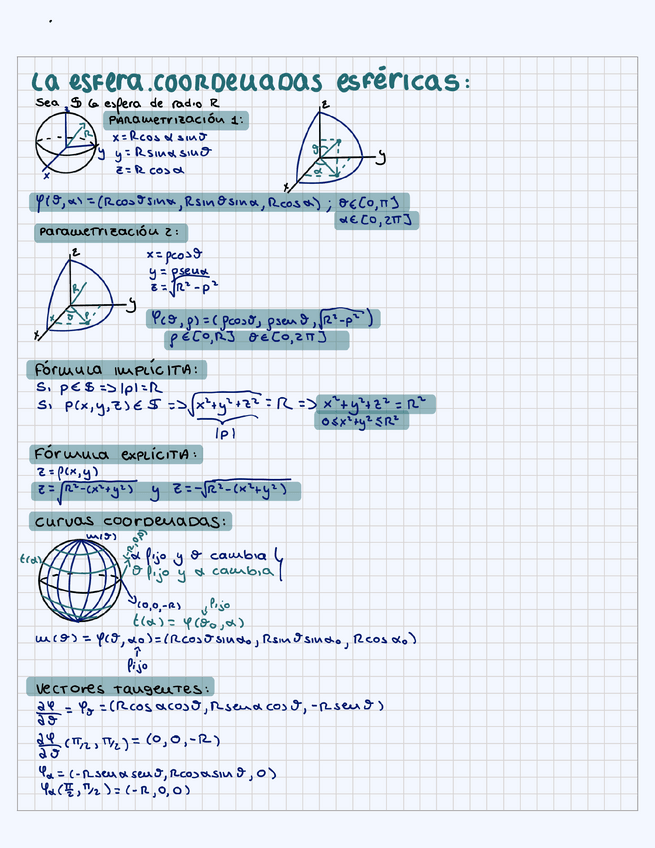 La esfera. coordenadas esféricas:
Sea $ la esfera de radio R
Parametrización 1:
x = R cos α sin ϑ
y = R sin α sin ϑ
z = R cos α
z
R
y
x
z
ϑ
α
y
x
φ(ϑ, α) = (R cos ϑ sin α, R sin ϑ sin α, R cos α) ; ϑ ∈ [0, π]
α ∈ [0, 2π]
Parametrización 2:
z
R
ϑ
ρ
y
x
x = ρ cos ϑ
y = ρ sen α
z = √(R² - ρ²)
φ(ϑ, ρ) = (ρ cos ϑ, ρ sen ϑ, √(R² - ρ²))
ρ ∈ [0, R] ϑ ∈ [0, 2π]
Fórmula implícita:
Si p ∈ $ => |p| = R
Si p(x, y, z) ∈ $ => √(x² + y² + z²) = R => x² + y² + z² = R²
|p|
0 ≤ x² + y² ≤ R²
Fórmula explícita:
z = f(x, y)
z = √(R² - (x² + y²)) y z = -√(R² - (x² + y²))
curvas coordenadas:
m(ϑ)
t(α)
α fijo y ϑ cambia
ϑ fijo y α cambia
(0, 0, -R)
fijo
t(α) = φ(ϑ₀, α)
m(ϑ) = φ(ϑ, α₀) = (R cos ϑ sin α₀, R sin ϑ sin α₀, R cos α₀)
fijo
Vectores tangentes:
∂φ/∂ϑ = φ_ϑ = (R cos α cos ϑ, R sen α cos ϑ, -R sen ϑ)
∂φ/∂ϑ (π/2, π/2) = (0, 0, -R)
φ_α = (-R sen α sen ϑ, R cos α sin ϑ, 0)
φ_α (π/2, π/2) = (-R, 0, 0)